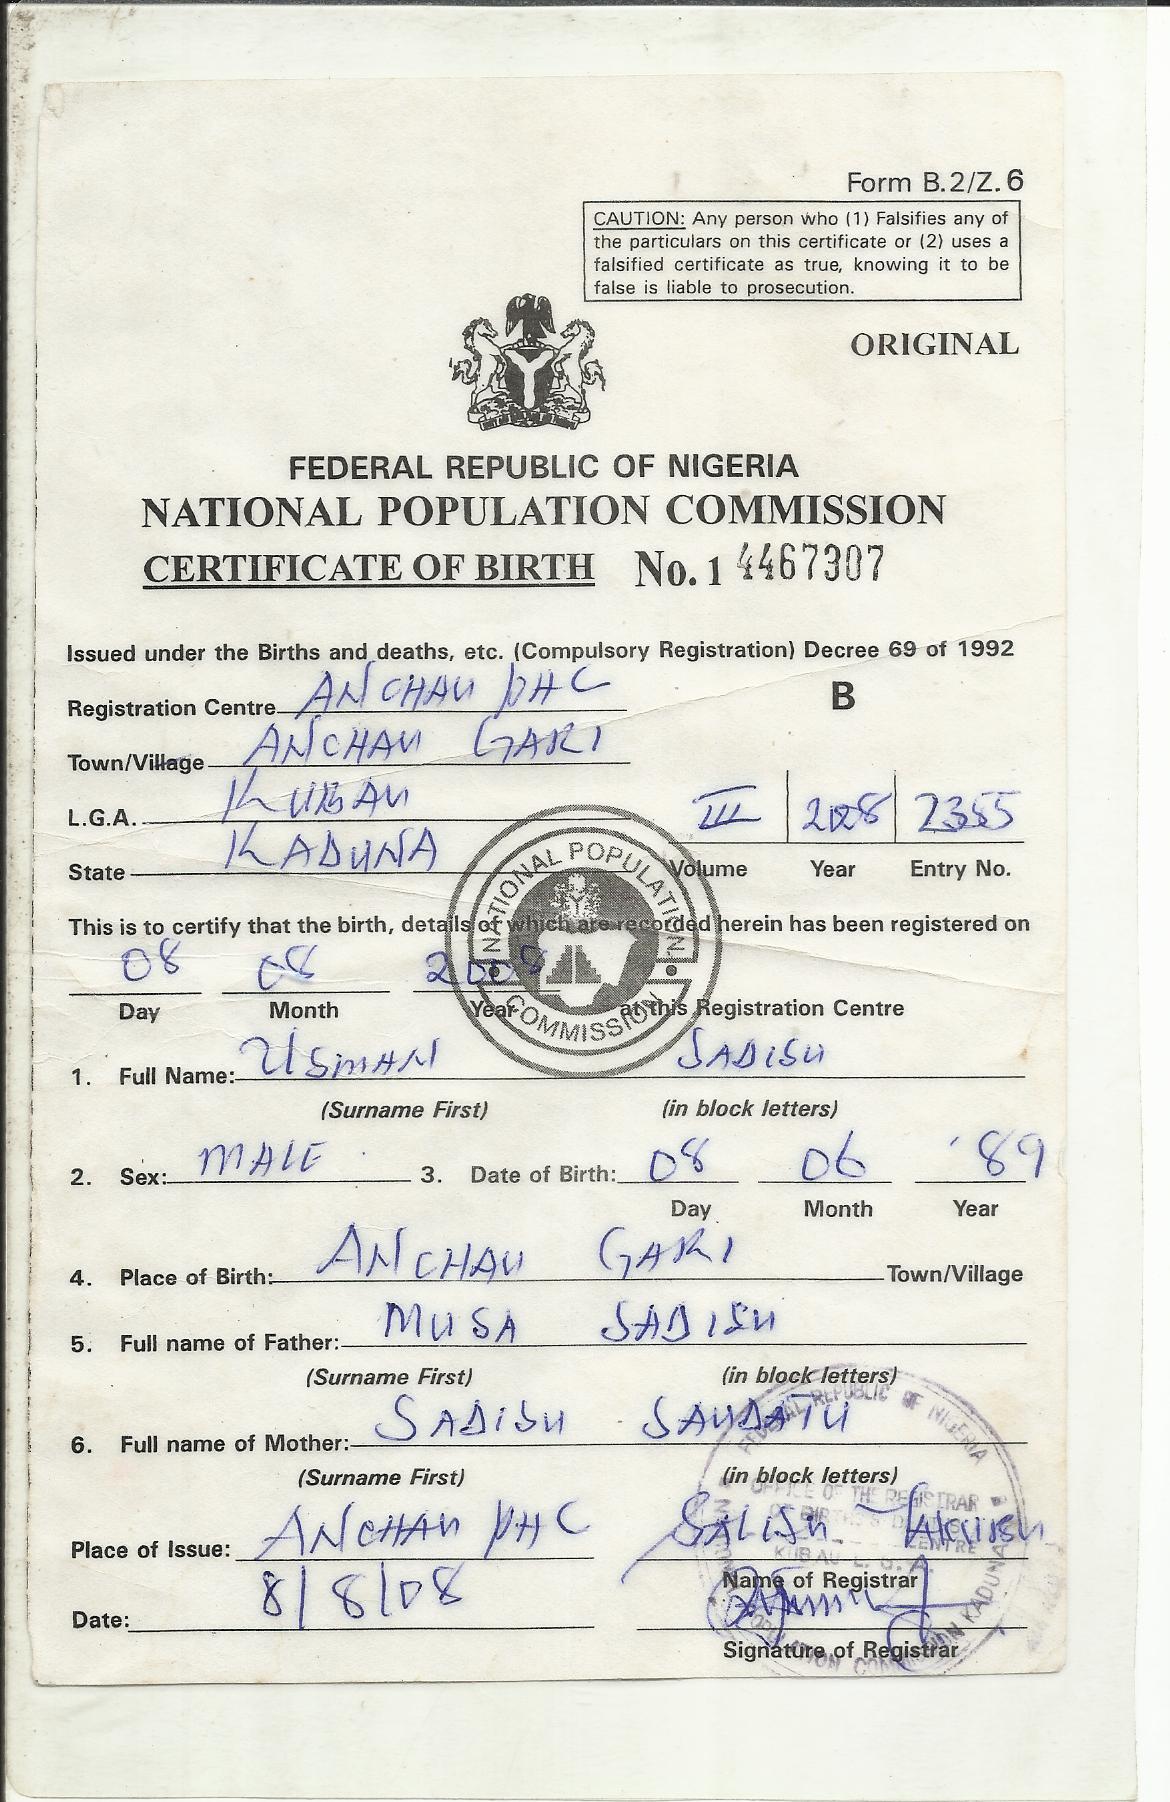 Form B.2/Z.6
CAUTION: Any person who (1) Falsifies any of
the particulars on this certificate or (2) uses a
falsified certificate as true, knowing it to be
false is liable to prosecution.
ORIGINAL
FEDERAL REPUBLIC OF NIGERIA
NATIONAL POPULATION COMMISSION
CERTIFICATE OF BIRTH No. 1 4467307
Issued under the Births and deaths, etc. (Compulsory Registration) Decree 69 of 1992
Registration Centre ANCHAU PHC B
Town/Village ANCHAU GARI
L.G.A. KUBAU III 2008 2355
State KADUNA Volume Year Entry No.
NATIONAL POPULATION COMMISSION
This is to certify that the birth, details of which are recorded herein has been registered on
08 08 2008
Day Month Year at this Registration Centre
1. Full Name: USMAN SADISU
(Surname First) (in block letters)
2. Sex: MALE 3. Date of Birth: 08 06 '89
Day Month Year
4. Place of Birth: ANCHAU GARI Town/Village
5. Full name of Father: MUSA SADISU
(Surname First) (in block letters)
6. Full name of Mother: SADISU SAUDATU
(Surname First) (in block letters)
FEDERAL REPUBLIC OF NIGERIA
OFFICE OF THE REGISTRAR
KUBAU L.G.A.
Place of Issue: ANCHAU PHC SALISU
Name of Registrar
Date: 8/8/08
Signature of Registrar
POPULATION COMMISSION KADUNA